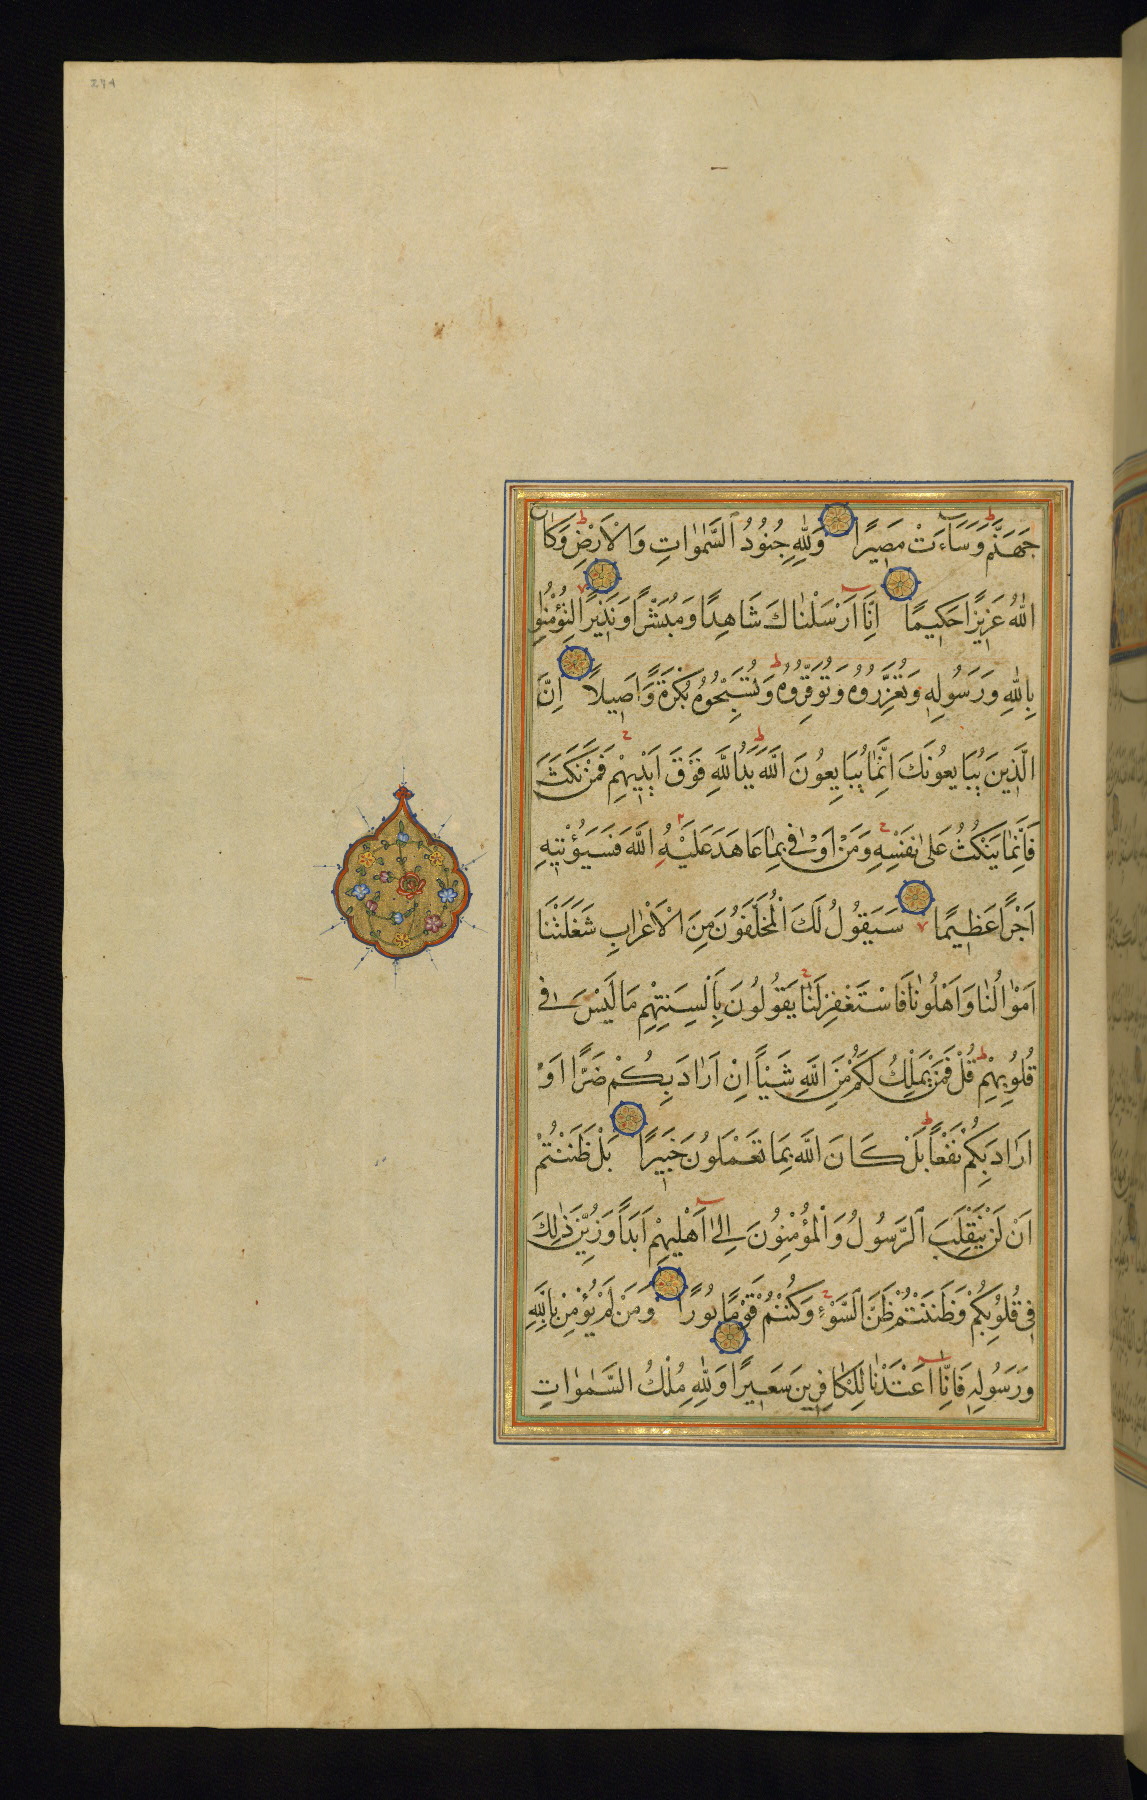 274
جَهَنَّمَ وَسَاءَتْ مَصِيرًا وَلِلّٰهِ جُنُودُ السَّمٰوَاتِ وَالْاَرْضِ وَكَانَ
اللّٰهُ عَزِيزًا حَكِيمًا اِنَّا اَرْسَلْنَاكَ شَاهِدًا وَمُبَشِّرًا وَنَذِيرًا لِتُؤْمِنُوا
بِاللّٰهِ وَرَسُولِهِ وَتُعَزِّرُوهُ وَتُوَقِّرُوهُ وَتُسَبِّحُوهُ بُكْرَةً وَاَصِيلًا اِنَّ
الَّذِينَ يُبَايِعُونَكَ اِنَّمَا يُبَايِعُونَ اللّٰهَ يَدُ اللّٰهِ فَوْقَ اَيْدِيهِمْ فَمَنْ نَكَثَ
فَاِنَّمَا يَنْكُثُ عَلٰى نَفْسِهِ وَمَنْ اَوْفٰى بِمَا عَاهَدَ عَلَيْهُ اللّٰهَ فَسَيُؤْتِيهِ
اَجْرًا عَظِيمًا سَيَقُولُ لَكَ الْمُخَلَّفُونَ مِنَ الْاَعْرَابِ شَغَلَتْنَا
اَمْوَالُنَا وَاَهْلُونَا فَاسْتَغْفِرْ لَنَا يَقُولُونَ بِاَلْسِنَتِهِمْ مَا لَيْسَ فِى
قُلُوبِهِمْ قُلْ فَمَنْ يَمْلِكُ لَكُمْ مِنَ اللّٰهِ شَيْئًا اِنْ اَرَادَ بِكُمْ ضَرًّا اَوْ
اَرَادَ بِكُمْ نَفْعًا بَلْ كَانَ اللّٰهُ بِمَا تَعْمَلُونَ خَبِيرًا بَلْ ظَنَنْتُمْ
اَنْ لَنْ يَنْقَلِبَ الرَّسُولُ وَالْمُؤْمِنُونَ اِلٰى اَهْلِيهِمْ اَبَدًا وَزُيِّنَ ذٰلِكَ
فِى قُلُوبِكُمْ وَظَنَنْتُمْ ظَنَّ السَّوْءِ وَكُنْتُمْ قَوْمًا بُورًا وَمَنْ لَمْ يُؤْمِنْ بِاللّٰهِ
وَرَسُولِهِ فَاِنَّا اَعْتَدْنَا لِلْكَافِرِينَ سَعِيرًا وَلِلّٰهِ مُلْكُ السَّمٰوَاتِ